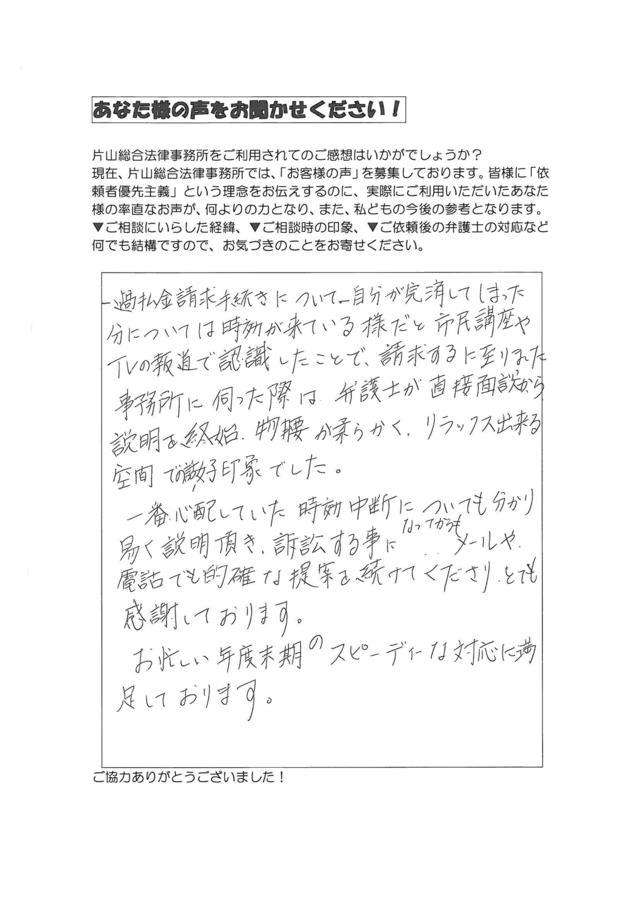 あなた様の声をお聞かせください！
片山総合法律事務所をご利用されてのご感想はいかがでしょうか？
現在、片山総合法律事務所では、「お客様の声」を募集しております。皆様に「依
頼者優先主義」という理念をお伝えするのに、実際にご利用いただいたあなた
様の率直なお声が、何よりの力となり、また、私どもの今後の参考となります。
▼ご相談にいらした経緯、▼ご相談時の印象、▼ご依頼後の弁護士の対応など
何でも結構ですので、お気づきのことをお寄せください。
過払金請求手続きについて 自分が完済してしまった
分については時効が来ている様だと市民講座や
TVの報道で認識したことで、請求するに至りました
事務所に伺った際は、弁護士が直接面談から
説明を終始、物腰が柔らかく、リラックス出来る
空間で好印象でした。
一番心配していた時効中断についても分かり
易く説明頂き、訴訟する事になってからもメールや
電話でも的確な提案を続けてくださり、とても
感謝しております。
お忙しい年度末期のスピーディーな対応に満
足しております。
ご協力ありがとうございました！